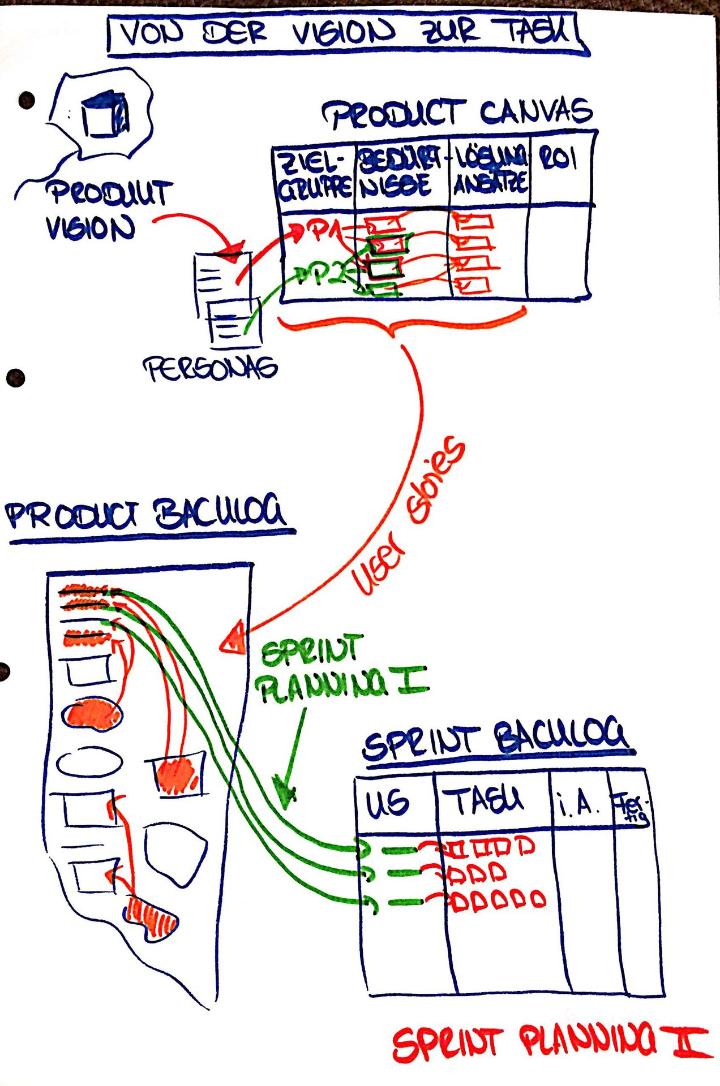 VON DER VISION ZUR TASK
PRODUCT CANVAS
ZIEL-
GRUPPE
BEDÜRF-
NISSE
LÖSUNG
ANSÄTZE
ROI
PRODUKT
VISION
P1
P2
PERSONAS
User stories
PRODUCT BACKLOG
SPRINT
PLANNING I
SPRINT BACKLOG
US
TASK
i.A.
Fer-
tig
SPRINT PLANNING II